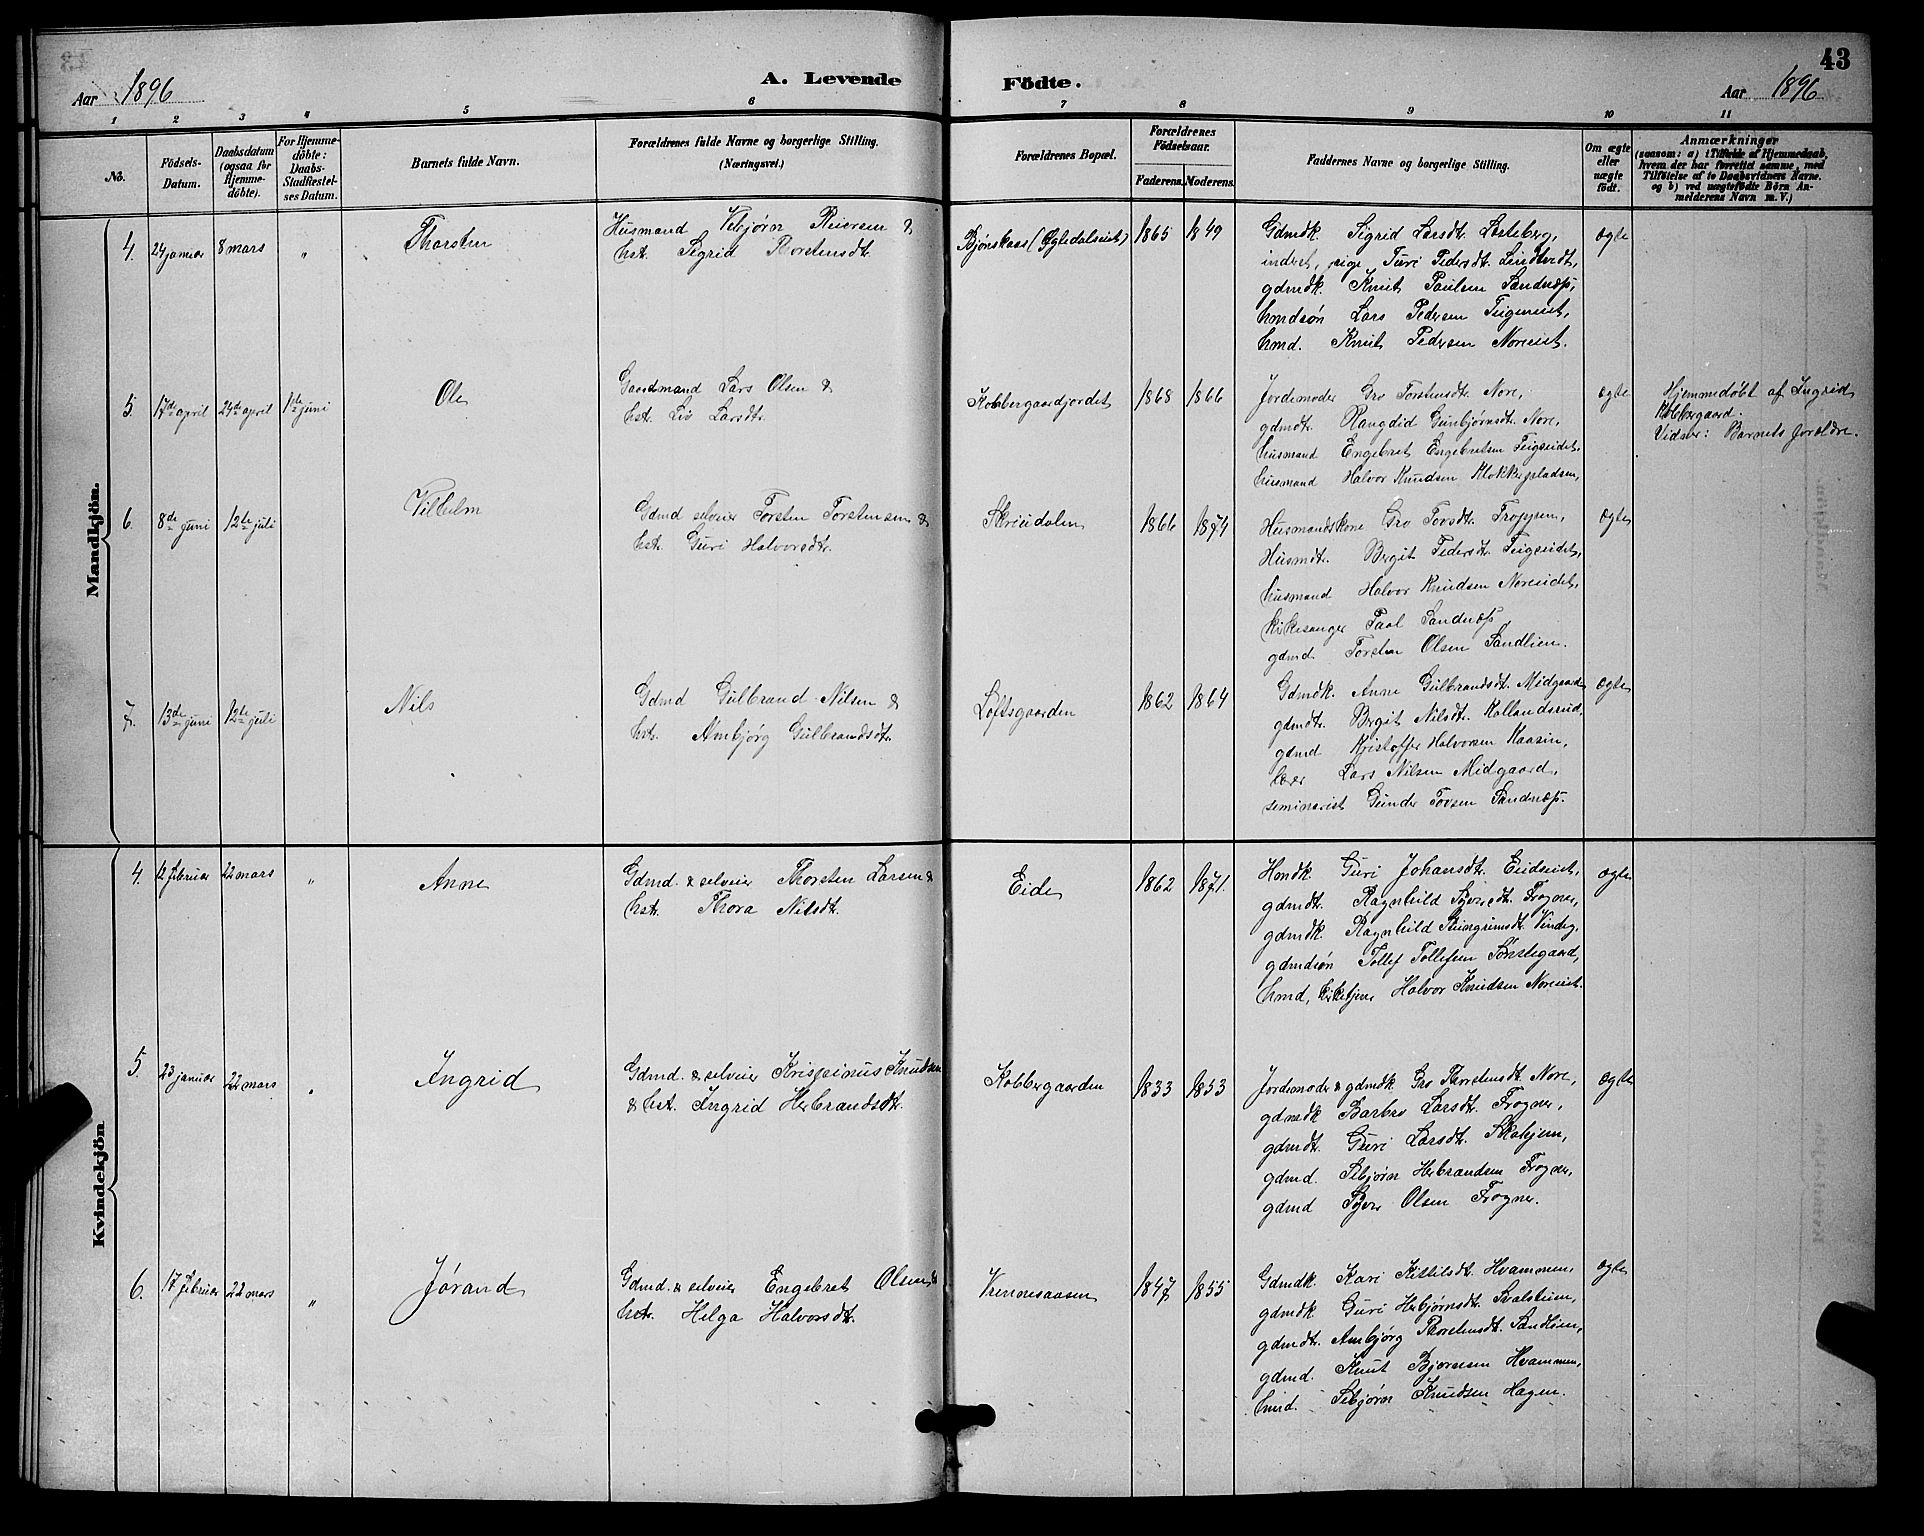 43
Aar 1896 A. Levende Födte. Aar 1896
1 2 3 4 5 6 7 8 9 10 11
No.
Födsels-
Datum.
Daabsdatum
(ogsaa for
Hjemme-
döbte).
For Hjemme-
döbte:
Daabs-
Stadfæstel-
ses Datum.
Barnets fulde Navn.
Forældrenes fulde Navne og borgerlige Stilling.
(Næringsvei.)
Forældrenes Bopæl.
Forældrenes
Födselsaar.
Faderens. Moderens.
Faddernes Navne og borgerlige Stilling.
Om ægte
eller
uægte
födt.
Anmærkninger
(saasom: a) i Tilfælde af Hjemmedaab,
hvem der har forrettet samme, med
Tilföielse af to Daabsvidners Navne.
og b) ved uægtefödte Börn An-
melderens Navn m. V.)
Mandkjön.
4. 24 januar 8 mars " Thorsten
Husmand Vebjørn Reiersen &
hst. Sigrid Thorstensdt.
Bjønskaas (Øgledalseiet) 1865 1849
Gdmdk. Sigrid Larsdt.
inderst, pige Turi Pedersdt. Lindtvedt,
gdmdk. Knut Paulsen Sandnæs,
hmdsøn Lars Pedersen Teigeneiet,
hmd. Knut Pedersen Noreeiet.
ægte
5 17de april 24de april 1ste juni Ole
Gaardmand Lars Olsen &
hst. Liv Larsdtr.
Kobbergaardjordet 1868 1866
Jordemoder Gro Torstensdt. Nore,
gdmdt. Rangdid Gunbjørnsdt. Nore,
husmand Engebret Engebretsen Teigseidet,
husmand Halvor Knudsen Klokkerpladsen,
ægte
Hjemmedøbt af Ingrid
Kobbergaard.
Vidner: Barnets forældre.
6. 8de juni 12te juli Vilhelm
Gdmd selveier Torsten Torstensen &
hst. Guri Halvorsdtr.
Skriudalen 1866 1874
Husmandskone Gro Tovsdt. Frogneren,
Husmdt. Bergit Pedersdt. Teigseidet,
husmand Halvor Knudsen Noreeidet,
kirkesanger Paal Sandnæs
gdmd. Torsten Olsen Sandlien.
ægte
7. 13de juni 12te juli Nils
Gdmd Gulbrand Nilsen &
hst. Ambjørg Gulbrandsdtr.
Loftsgaarden 1862 1864
Gdmdk. Anne Gulbrandsdt. Midgaard
gdmdt. Bergit Nilsdt. Kollandsrud,
gdmd Kristoffer Halvorsen Kaasin,
lærer Lars Nilsen Midgaard,
seminarist Gunder Tovsen Sandnæs.
ægte
Kvindekjön
4. 12 februar 22 mars " Anne
Gdmd. & selveier Thorsten Larsen &
hst. Thora Nilsdt.
Eide 1862 1871.
Hmdk. Guri Johansdt. Eideeiet,
gdmdt. Ragnhild Syversdt. Frogner,
gdmdk. Ragnhild Steingrimsdt. Vindeg,
gdmdsøn Tollef Tollefsen Sønstegaard,
hmd, kirketjener Halvor Knudsen Noreeiet.
ægte
5. 23 januar 22 mars " Ingrid
Gdmd. & selveier Krispinus Knudsen
& hst. Ingrid Herbrandsdt.
Kobbergaarden 1833 1853
Jordemoder & gdmdk. Gro Thorstensdt. Nore,
gdmdk Barbro Larsdt. Frogner,
gdmdt. Guri Larsdt. Skahjem,
gdmd. Sebjørn Herbrandsen Frogner,
gdmd Syver Olsen Frogner.
ægte
6. 17 februar 22 mars " Jørand
Gdmd. & selveier Engebret Olsen &
hst. Helga Halvorsdt.
Vrennesaasen 1847 1855
Gdmdk. Kari Kittilsdt. Hvammen,
gdmdk Guri Herbjørnsdt. Svalstuen,
gdmdt. Ambjørg Thorstensdt. Sandlien,
gdmd. Knut Bjørnsen Hvammen,
hmd. Sebjørn Knudsen Hagen.
ægte